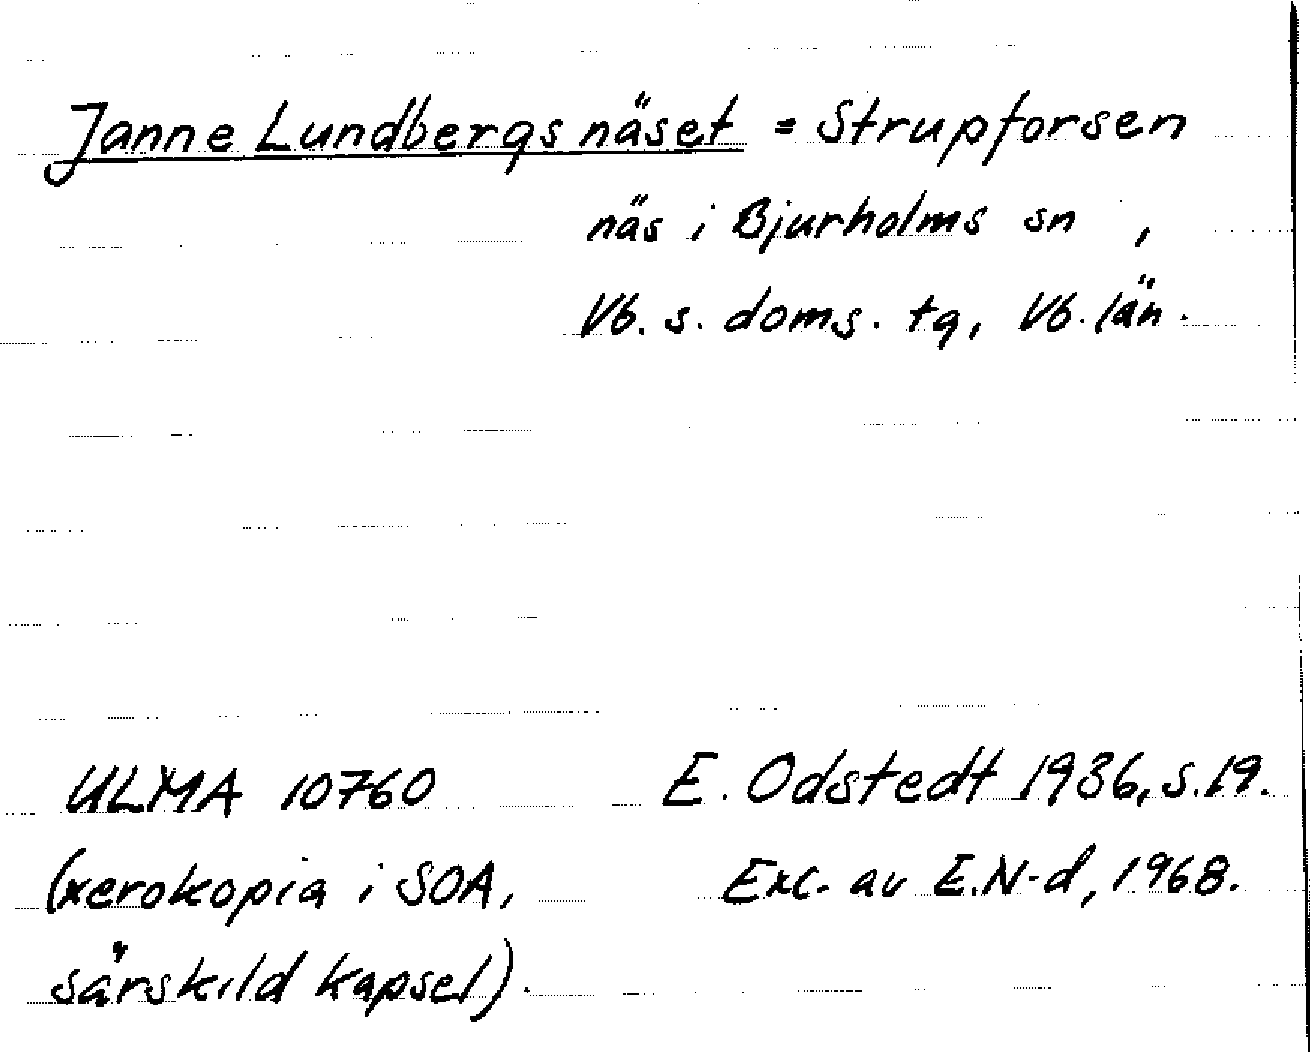 Janne Lundbergs näset = Strupforsen
näs i Bjurholms sn ,
Vb. s. doms. tg, Vb. län.
ULMA 10760
(xerokopia i SOA,
särskild kapsel).
E. Odstedt 1936, s. 19.
Exc. av E.N-d, 1968.